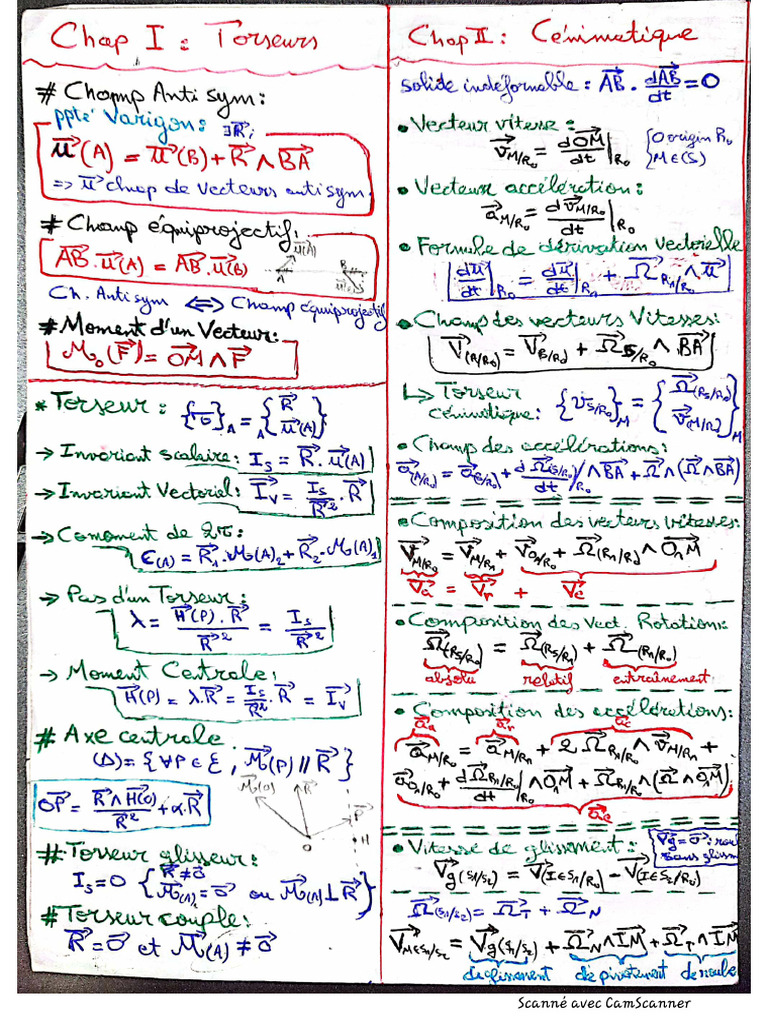 Chap I : Torseurs
# Champ Anti sym :
ppté Varigon : ∃R⃗ ;
u⃗(A) = u⃗(B) + R⃗ ∧ BA⃗
=> u⃗ chap de vecteurs anti sym.
# Champ équiprojectif :
AB⃗ . u⃗(A) = AB⃗ . u⃗(B)
u⃗(A)
A
B
Ch. Anti sym <=> Champ équiprojectif
# Moment d'un Vecteur :
M⃗o(F⃗) = OM⃗ ∧ F⃗
* Torseur : {τ}A = A{R⃗
u⃗(A)}
→ Invariant scalaire : Is = R⃗ . u⃗(A)
→ Invariant Vectoriel : I⃗v = Is/R⃗² . R⃗
→ Comoment de 2τ :
C(A) = R⃗1 . M⃗(A)2 + R⃗2 . M⃗(A)1
→ Pas d'un Torseur :
λ = H⃗(P) . R⃗ / R⃗² = Is / R⃗²
→ Moment Centrale :
H⃗(P) = λ.R⃗ = Is/R⃗² . R⃗ = I⃗v
# Axe centrale
(Δ) = {∀P ∈ ξ ; M⃗(P) // R⃗}
M⃗(O) R⃗
OP⃗ = R⃗ ∧ H⃗(O) / R⃗² + α.R⃗
P
H
O
# Torseur glisseur :
Is = 0 { R⃗ ≠ 0⃗
M⃗(A) = 0⃗ ou M⃗(A) ⊥ R⃗ }
# Torseur couple :
R⃗ = 0⃗ et M⃗(A) ≠ 0⃗
Chap II : Cénimatique
solide indéformable : AB⃗ . dAB⃗/dt = 0
• Vecteur vitesse :
V⃗M/R0 = dOM⃗/dt |R0 { O origin R0
M ∈ (S)
• Vecteur accélération :
a⃗M/R0 = dV⃗M/R0 / dt |R0
• Formule de dérivation vectorielle
du⃗/dt |R0 = du⃗/dt |R1 + Ω⃗R1/R0 ∧ u⃗
• Champ des vecteurs Vitesses :
V⃗(A/R0) = V⃗(B/R0) + Ω⃗S/R0 ∧ BA⃗
↳ Torseur
cénimatique : {𝒱S/R0}M = {Ω⃗(S/R0)
V⃗(M/R0)}M
• Champ des accélérations :
a⃗(A/R0) = a⃗(B/R0) + dΩ⃗(S/R0)/dt |R0 ∧ BA⃗ + Ω⃗ ∧ (Ω⃗ ∧ BA⃗)
• Composition des vecteurs vitesses :
V⃗M/R0 = V⃗M/R1 + V⃗O1/R0 + Ω⃗(R1/R0) ∧ O1M⃗
V⃗a = V⃗r + V⃗e
• Composition des Vect. Rotations :
Ω⃗(RS/R0) = Ω⃗(RS/R1) + Ω⃗(R1/R0)
absolu relatif entraînement
• Composition des accélérations :
a⃗a a⃗r a⃗c
a⃗M/R0 = a⃗M/R1 + 2 Ω⃗R1/R0 ∧ V⃗M/R1 +
a⃗O1/R0 + dΩ⃗R1/R0 / dt |R0 ∧ O1M⃗ + Ω⃗R1/R0 ∧ (Ω⃗ ∧ O1M⃗)
a⃗e
• Vitesse de glissment :
V⃗g = 0⃗ : rou
sans glissm
V⃗g(S1/S2) = V⃗(I∈S1/R0) - V⃗(I∈S2/R0)
Ω⃗(S1/S2) = Ω⃗T + Ω⃗N
V⃗M∈S1/S2 = V⃗g(S1/S2) + Ω⃗N ∧ IM⃗ + Ω⃗T ∧ IM⃗
de glissment de pivotement de roule
Scanné avec CamScanner